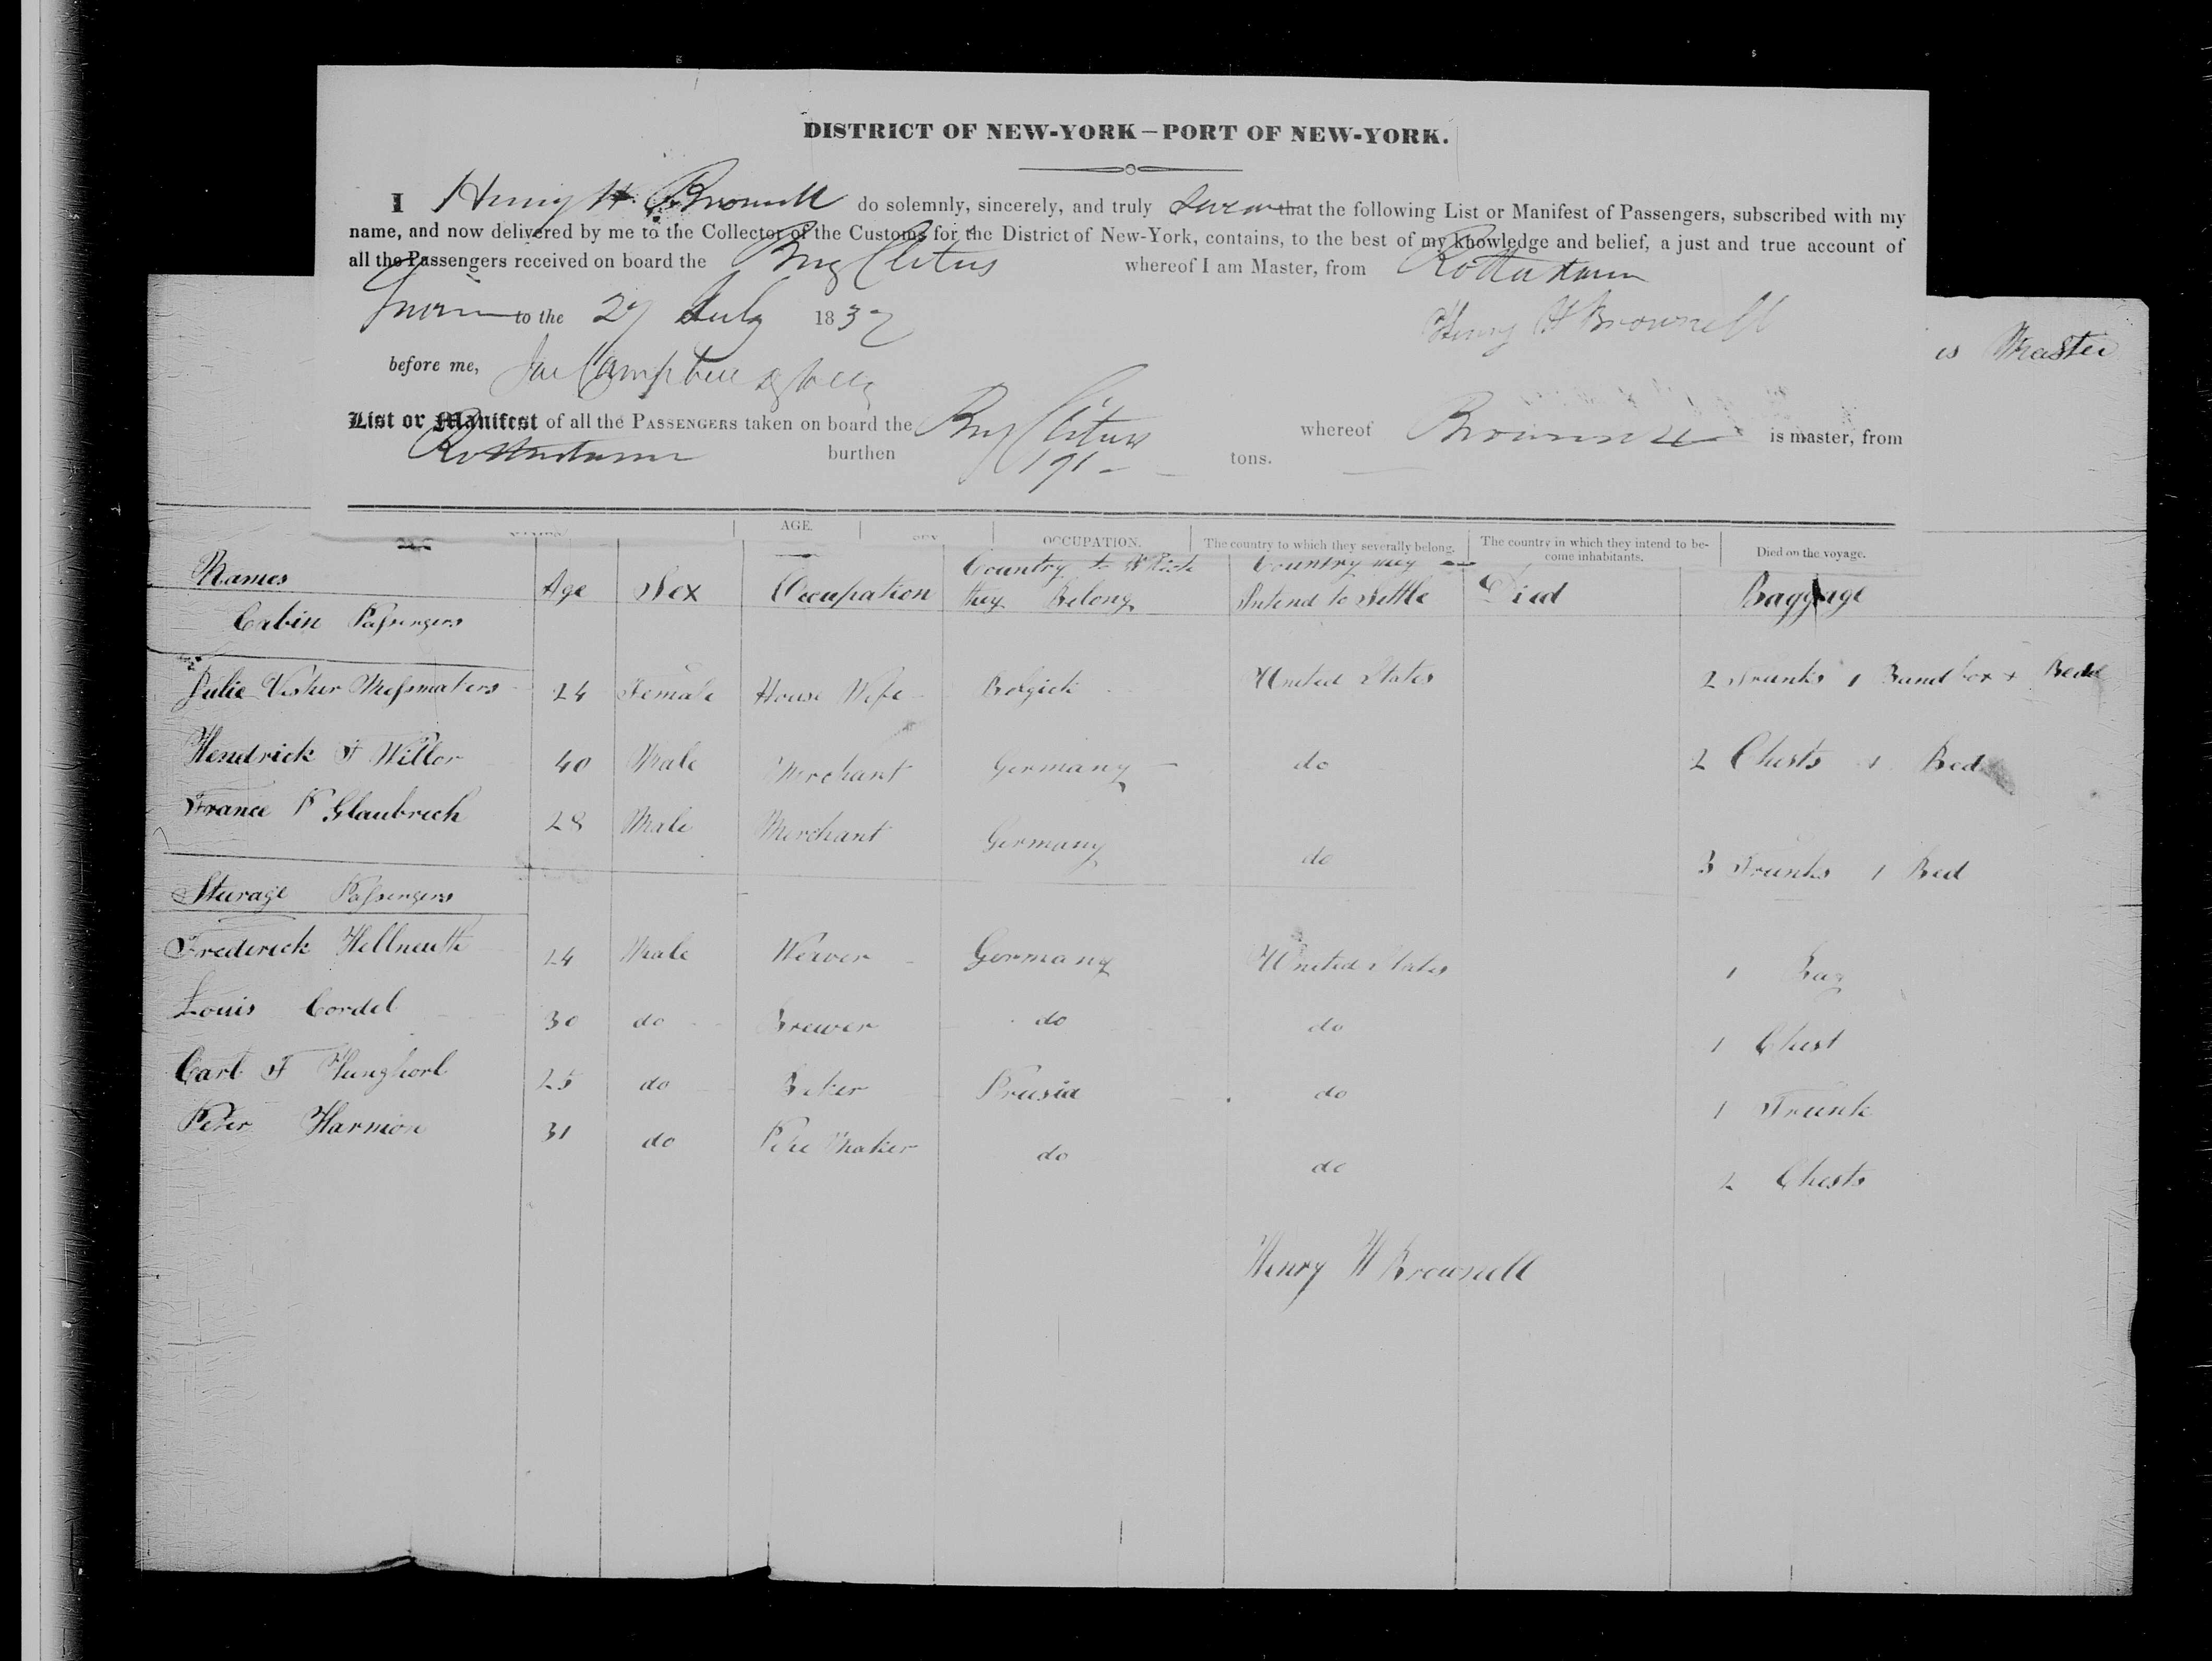 DISTRICT OF NEW-YORK—PORT OF NEW-YORK.
I Henry H. Brownell do solemnly, sincerely, and truly swear that the following List or Manifest of Passengers, subscribed with my
name, and now delivered by me to the Collector of the Customs for the District of New-York, contains, to the best of my knowledge and belief, a just and true account of
all the Passengers received on board the Brig Clitus whereof I am Master, from Rotterdam
Sworn to the 27 July 1837 Henry H Brownell
is Master
before me, Campbell
List or Manifest of all the PASSENGERS taken on board the Brig Clitus whereof Brownell is master, from
Rotterdam burthen 191 tons.
AGE. OCCUPATION. The country to which they severally belong. The country in which they intend to become inhabitants. Died on the voyage.
Names Age Sex Occupation Country to Which they Belong Country they Intend to Settle Died Baggage
Cabin Passengers
Julie Visher Messmakers 24 Female House Wife Belgick United States 2 Trunks 1 Bandbox + Bed
Hendrick F Willer 40 Male Merchant Germany do 2 Chests 1 Bed
France P Glaubrech 28 Male Merchant Germany do 3 Trunks 1 Bed
Sturage Passengers
Frederick Hellneuth 24 Male Weaver Germany United States 1 Bag
Louis Cordel 30 do Brewer do do 1 Chest
Carl F 25 do Beker Prusia do 1 Trunk
Peter Harmon 31 do Maker do do 2 Chests
Henry H Brownell